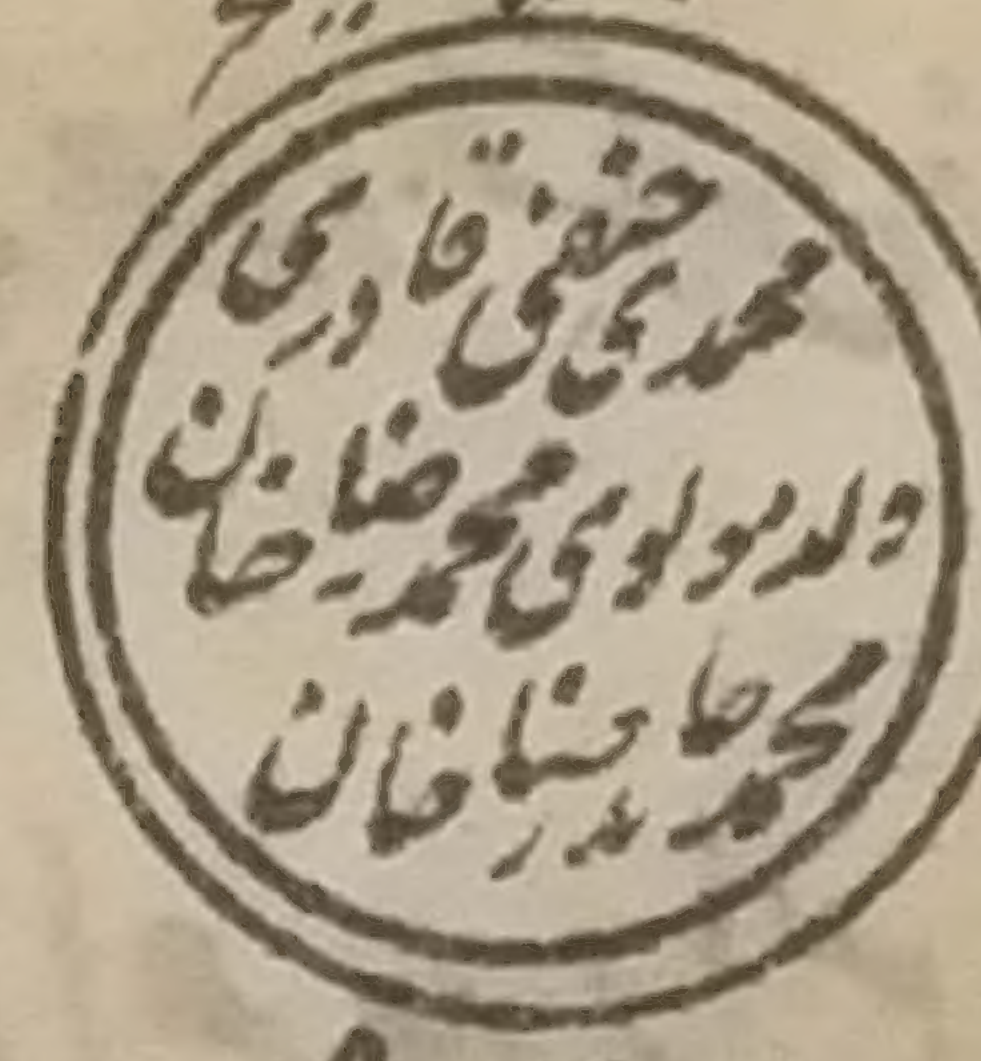 محمدی حنفی قادری
ولد مولوی محمد رضا خان
محمد حامد رضا خان